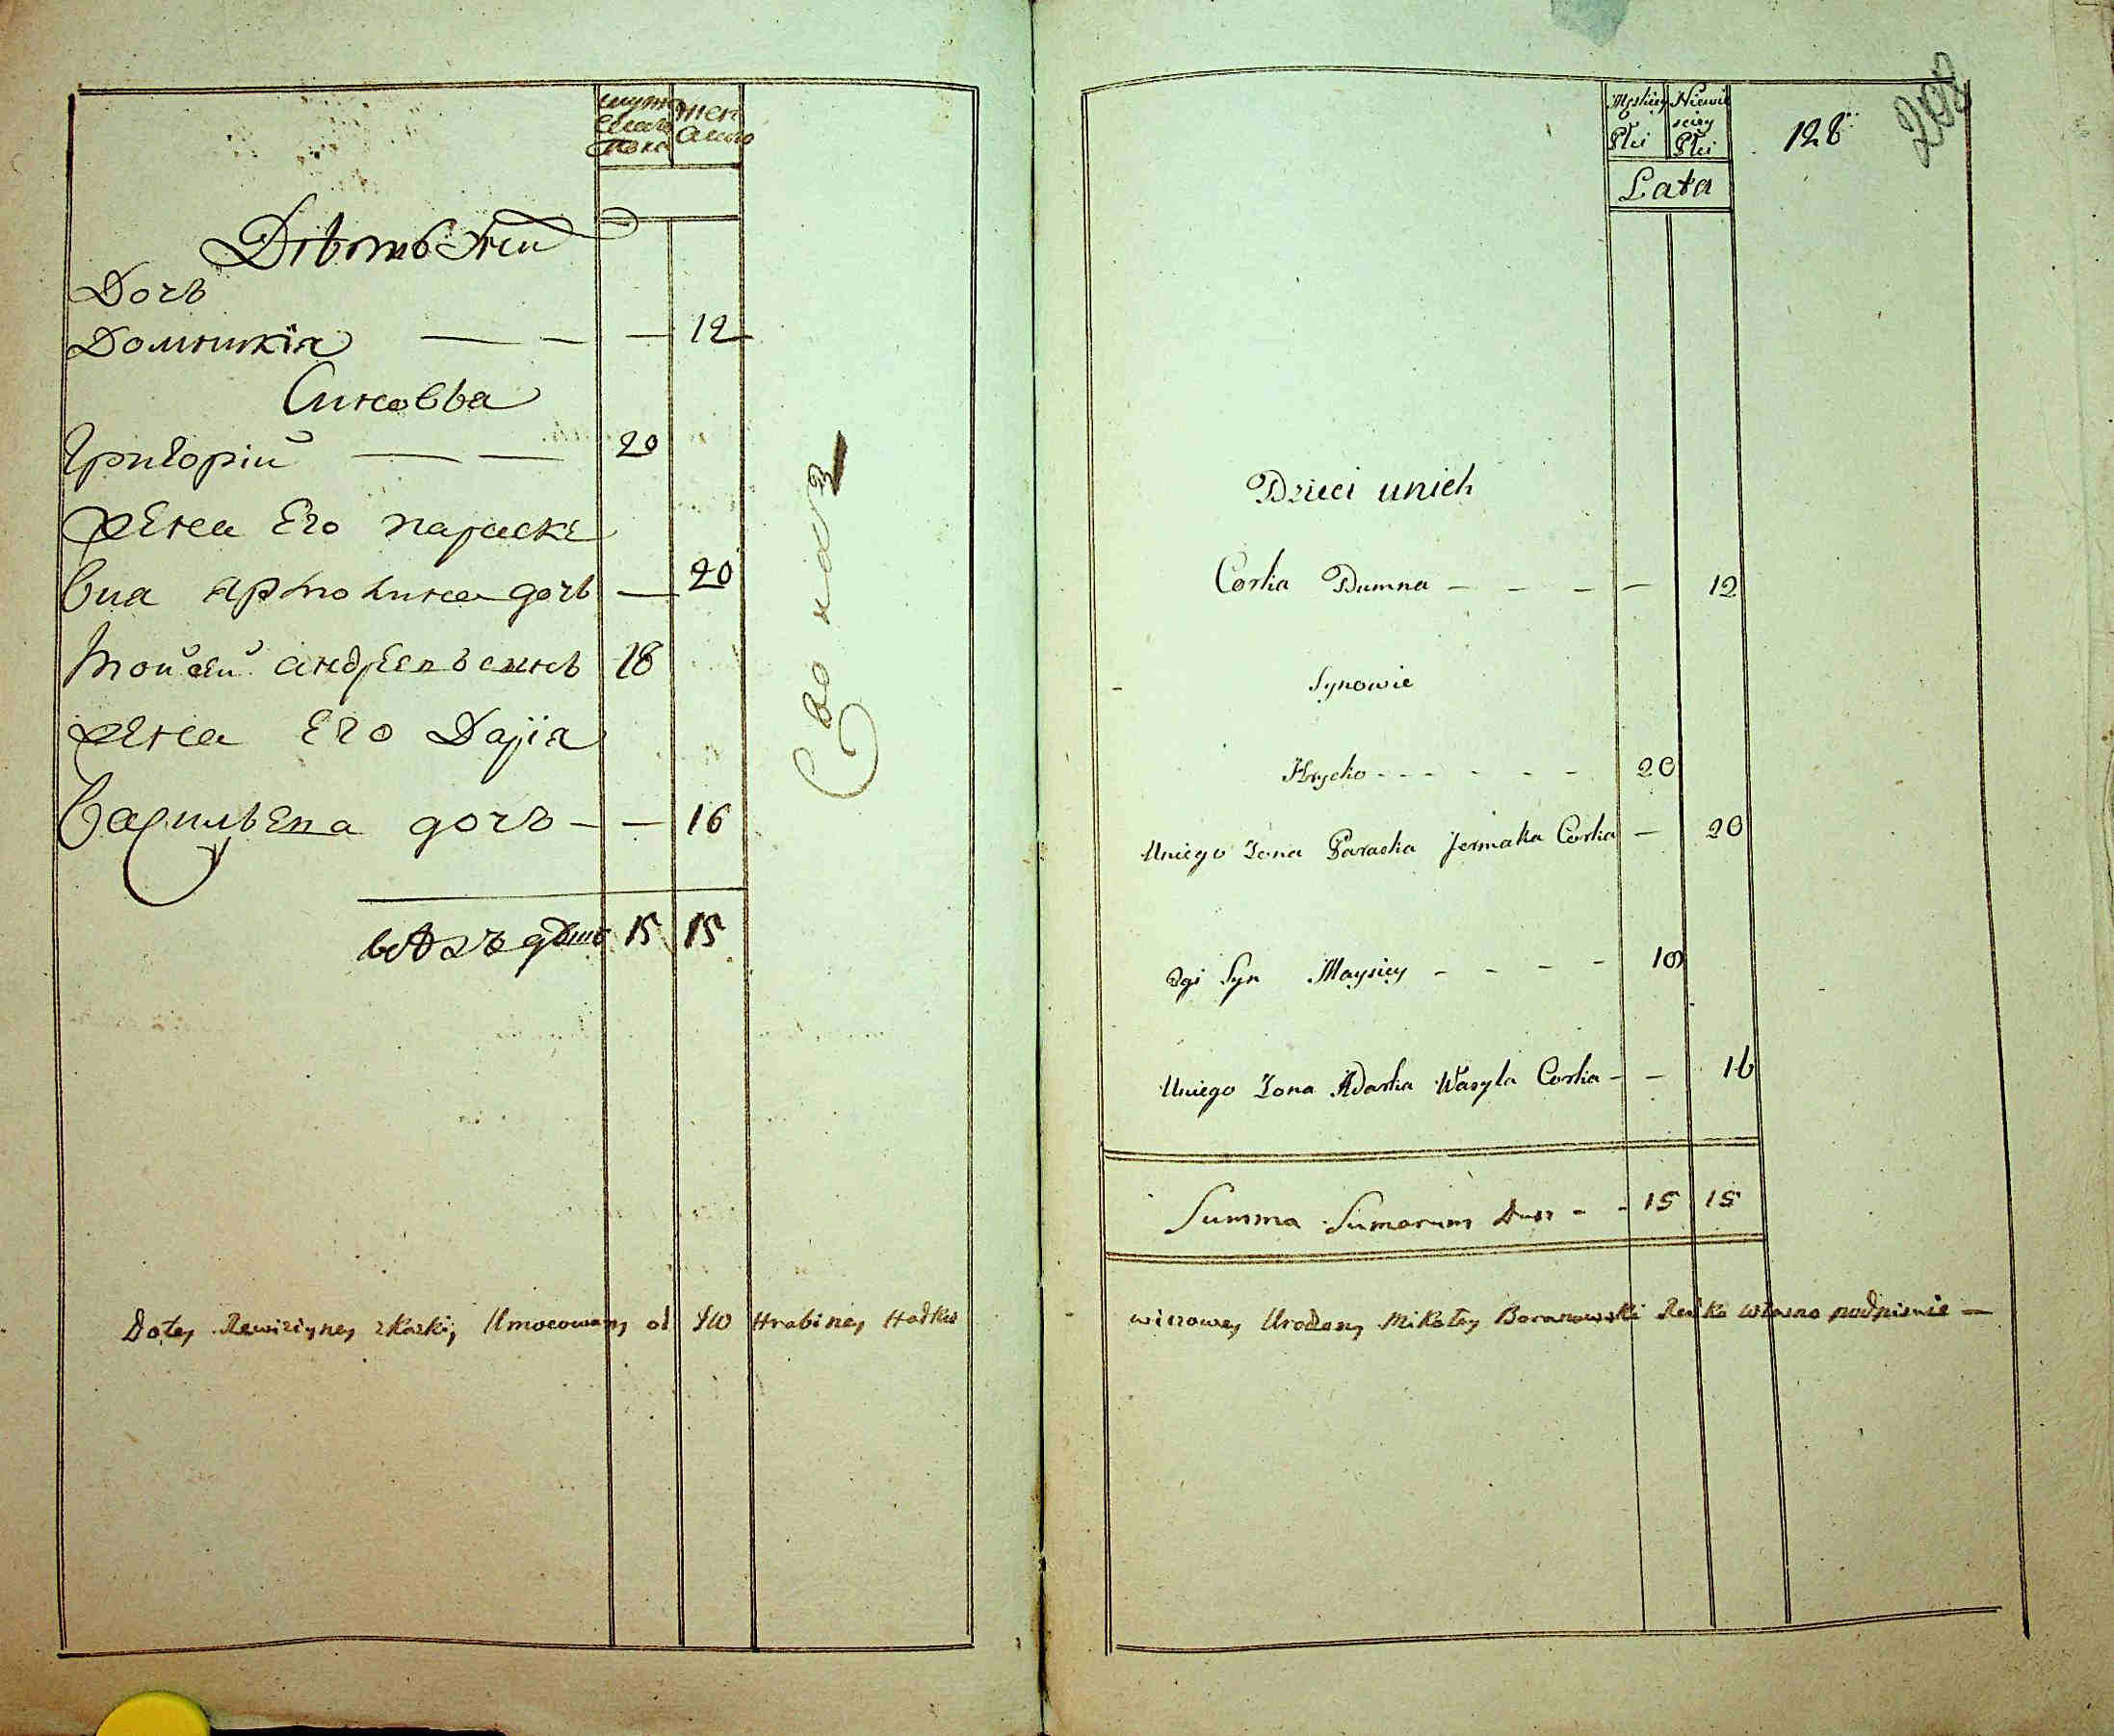 мужеска пола
женска
Детей
Дочь
Домникія — — — 12
Синовья
Григорій — — 20
Жена Его параске
вия
дочь — 20
Мойсей андреевъ синъ 18
Жена Его Дарія
Васильева дочь — — 16
душъ 15 15
Dotey Rewizyney skaski, Umocowany od JW Hrabiney Hadko
Męskiey Płci
Niewiesciey Płci
128
208
Lata
Dzieci unich
Corka Dumna — - - — 12
Synowie
Hrycko - - - - - - 20
Uniego Zona Paraska Jermaka Corka — 20
2gi Syn Maysiey - - - - 18
Uniego Zona Adarka Wasyla Corka - — 16
Summa Sumarum Dusz - - 15 15
wiczowey Urodzony Mikołay Baranowski Ręką własno podpisuie —